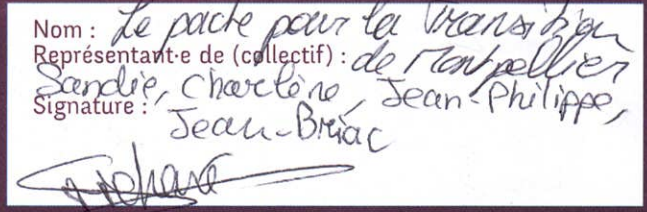 Nom : Le pacte pour la transition
Représentant·e de (collectif) : de Montpellier
Sandie, Charlène, Jean-Philippe,
Signature :
Jean-Briac